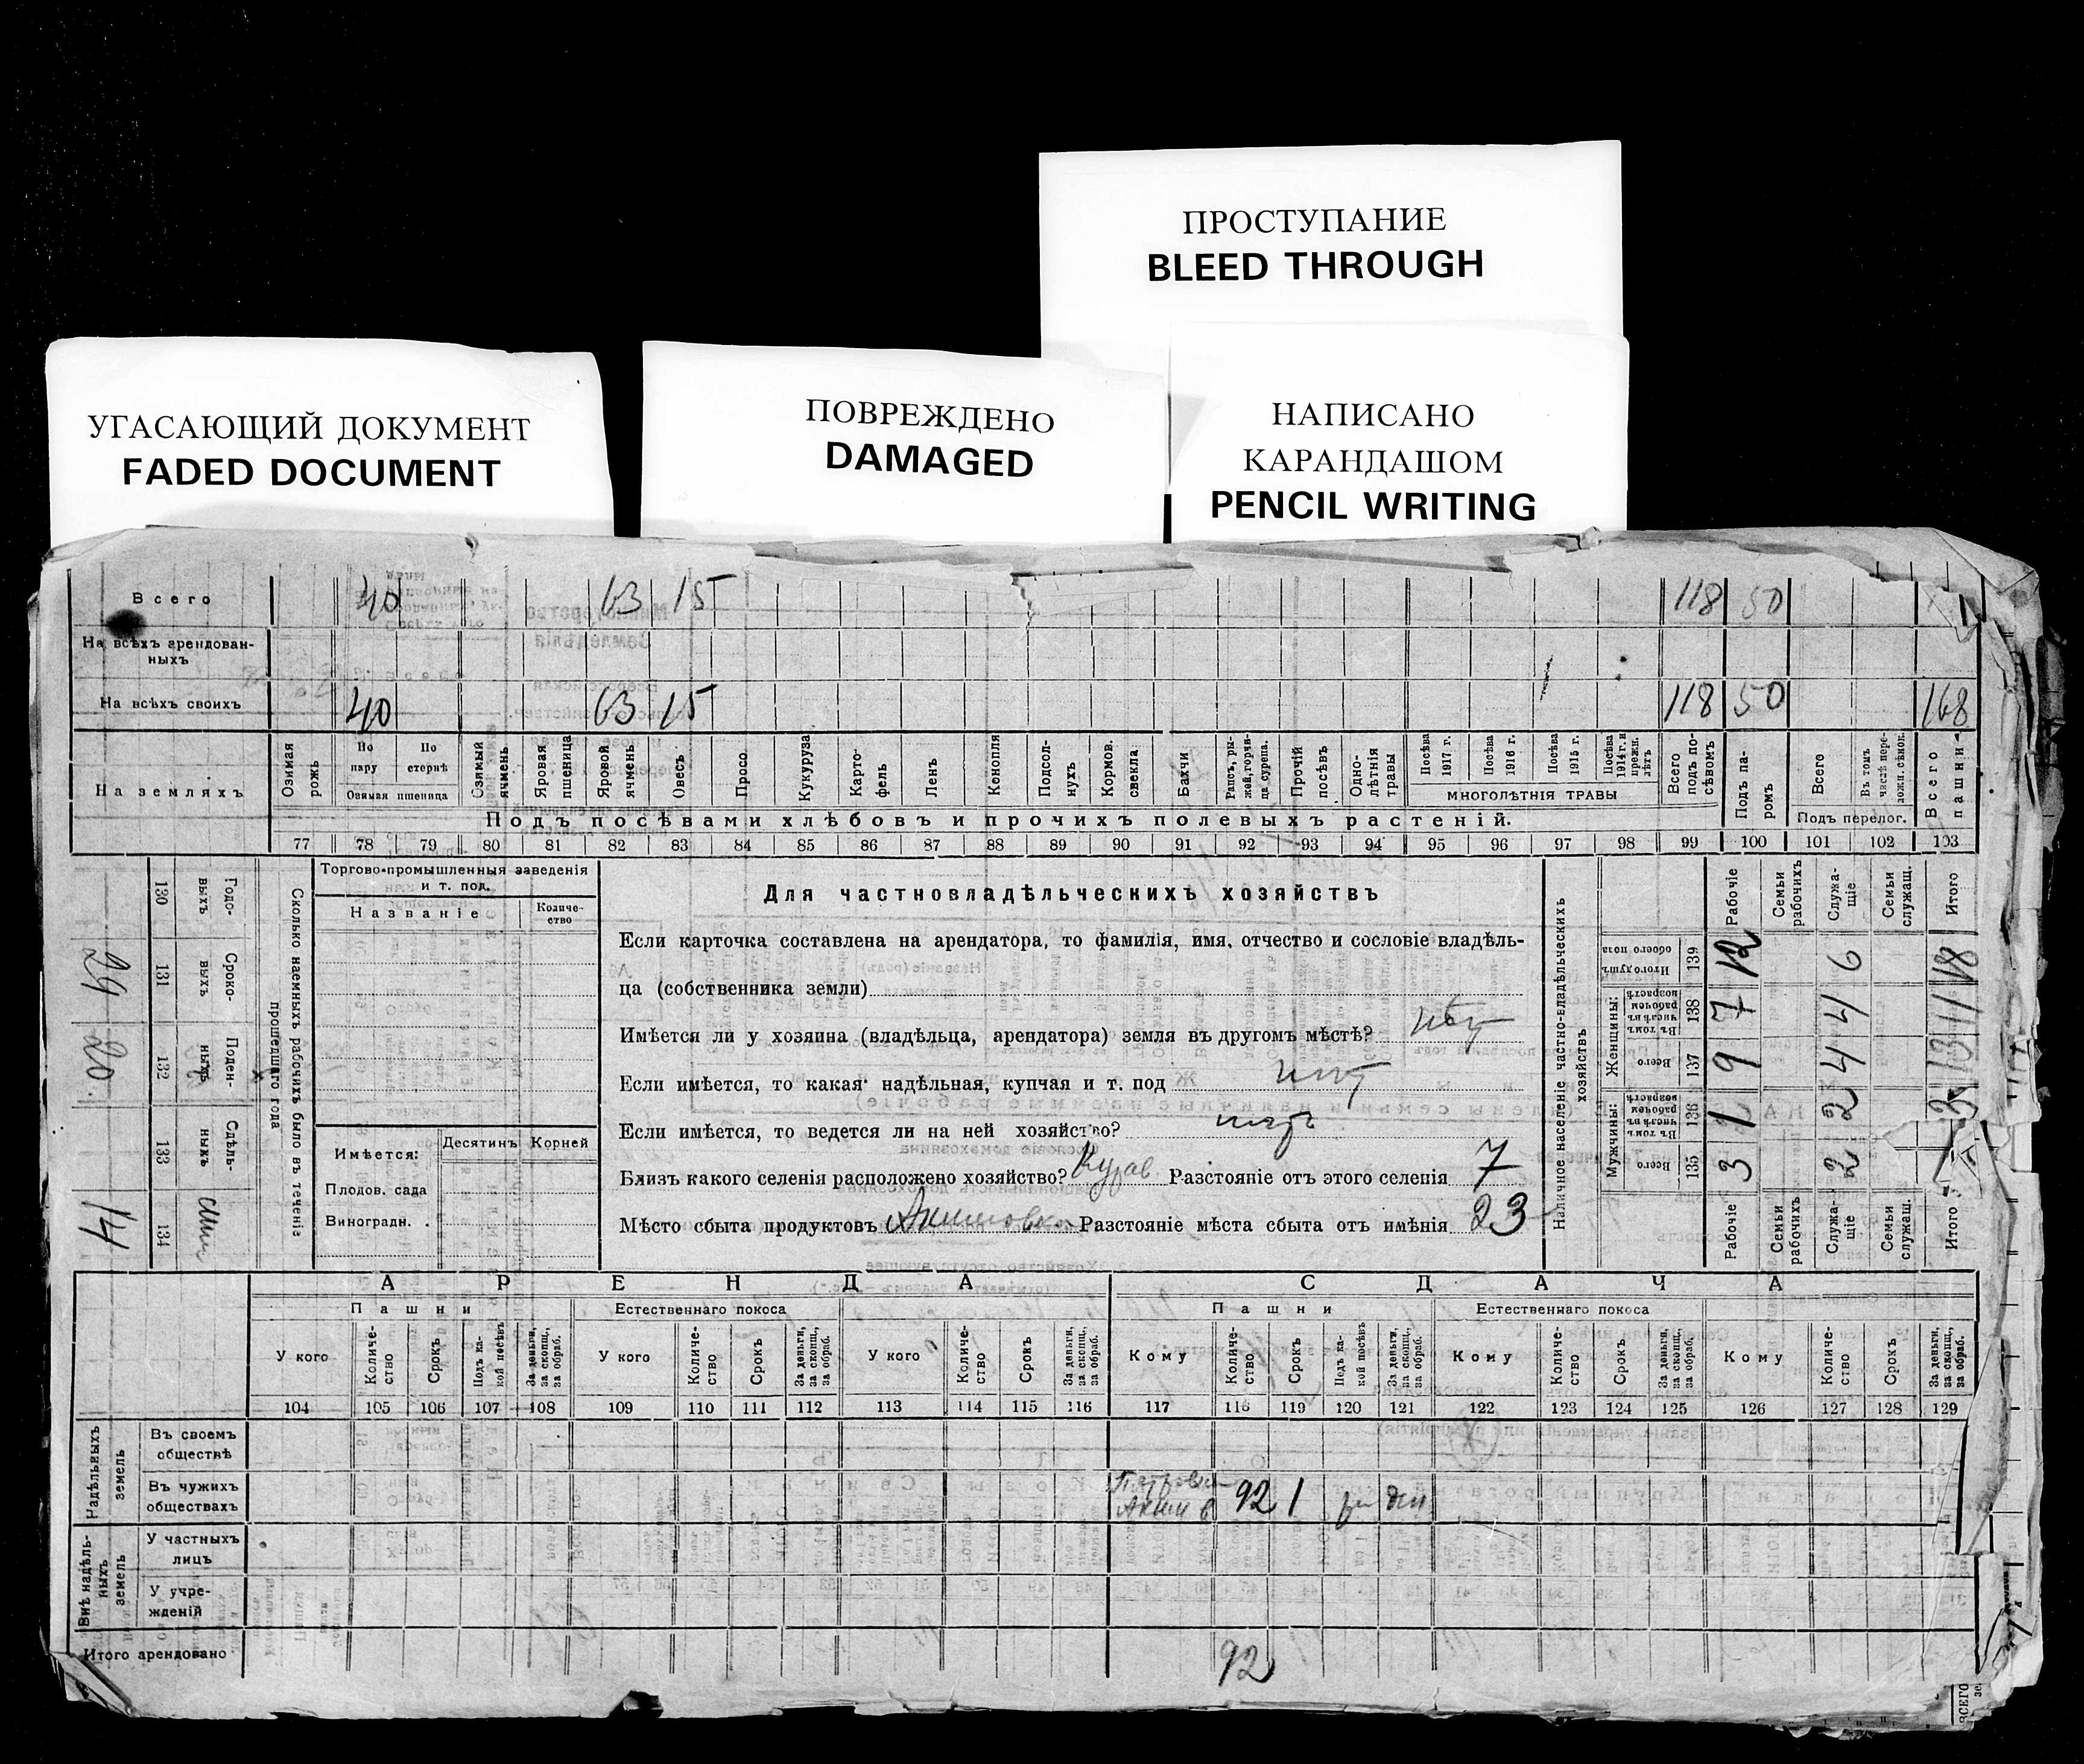 ПРОСТУПАНИЕ
BLEED THROUGH
УГАСАЮЩИЙ ДОКУМЕНТ
FADED DOCUMENT
ПОВРЕЖДЕНО
DAMAGED
НАПИСАНО
КАРАНДАШОМ
PENCIL WRITING
Всего 40 63 15 118 50
На всѣхъ арендован-
ныхъ
На всѣхъ своихъ 40 63 15 118 50 168
На земляхъ
Озимая рожь
По пару
По стернѣ
Озимая пшеница
Озимый ячмень
Яровая пшеница
Яровой ячмень
Овесъ
Просо
Кукуруза
Карто-
фель
Ленъ
Конопля
Подсол-
нухъ
Кормов. свекла
Бахчи
Рапсъ, ры-
жей, горчи-
ца сурепа.
Прочій посѣвъ
Одно-
лѣтнія травы
Посѣва 1917 г.
Посѣва 1916 г.
Посѣва 1915 г.
Посѣва 1914 г. и прежн. лѣтъ
МНОГОЛѢТНІЯ ТРАВЫ
Всего подъ по-
сѣвомъ
Подъ па-
ромъ
Всего
Въ томъ числѣ пере-
ложн. сѣнок.
Подъ перелог.
Всего пашни
Подъ посѣвами хлѣбовъ и прочихъ полевыхъ растеній.
77 78 79 80 81 82 83 84 85 86 87 88 89 90 91 92 93 94 95 96 97 98 99 100 101 102 103
Сколько наемныхъ рабочихъ было въ теченіе
прошедшаго года
Годо-
выхъ
Сроко-
выхъ
Поден-
ныхъ
Сдѣль-
ныхъ
130 131 132 133 134
29 20. 14
Торгово-промышленныя заведенія
и т. под.
Названіе
Количе-
ство
Имѣется:
Десятинъ Корней
Плодов. сада
Виноградн.
Для частновладѣльческихъ хозяйствъ
Если карточка составлена на арендатора, то фамилія, имя, отчество и сословіе владѣль-
ца (собственника земли)
Имѣется ли у хозяина (владѣльца, арендатора) земля въ другомъ мѣстѣ? нѣт
Если имѣется, то какая надѣльная, купчая и т. под нѣт
Если имѣется, то ведется ли на ней хозяйство? нѣтъ
Близъ какого селенія расположено хозяйство? Разстояніе отъ этого селенія 7
Мѣсто сбыта продуктовъ Акимовка Разстояніе мѣста сбыта отъ имѣнія 23
Наличное населеніе частно-владѣльческихъ
хозяйствъ
Рабочіе
Семьи рабочихъ
Служа-
щіе
Семьи служащ.
Итого
Итого душъ обоего пола 139 12 6 18
Женщины:
Въ томъ числѣ въ рабочемъ возрастѣ 138 7 4 11
Всего 137 9 4 13
Мужчины:
Въ томъ числѣ въ рабочемъ возрастѣ 136 1 2 3
Всего 135 3 2
Рабочіе
Семьи рабочихъ
Служа-
щіе
Семьи служащ.
Итого
АРЕНДА СДАЧА
Пашни Естественнаго покоса Пашни Естественнаго покоса
У кого Количе-
ство Срокъ Подъ ка-
кой посѣвъ За деньги, за скопщ., за обраб.
У кого Количе-
ство Срокъ За деньги, за скопщ., за обраб.
У кого Количе-
ство Срокъ За деньги, за скопщ., за обраб.
Кому Количе-
ство Срокъ Подъ ка-
кой посѣвъ За деньги, за скопщ., за обраб.
Кому Количе-
ство Срокъ За деньги, за скопщ., за обраб.
Кому Количе-
ство Срокъ За деньги, за скопщ., за обраб.
104 105 106 107 108 109 110 111 112 113 114 115 116 117 118 119 120 121 122 123 124 125 126 127 128 129
Надѣльныхъ
земель
Въ своемъ
обществѣ
Въ чужихъ
обществахъ 92 1
Внѣ надѣль-
ныхъ
земель
У частныхъ
лицъ
У учре-
жденій
Итого арендовано 92